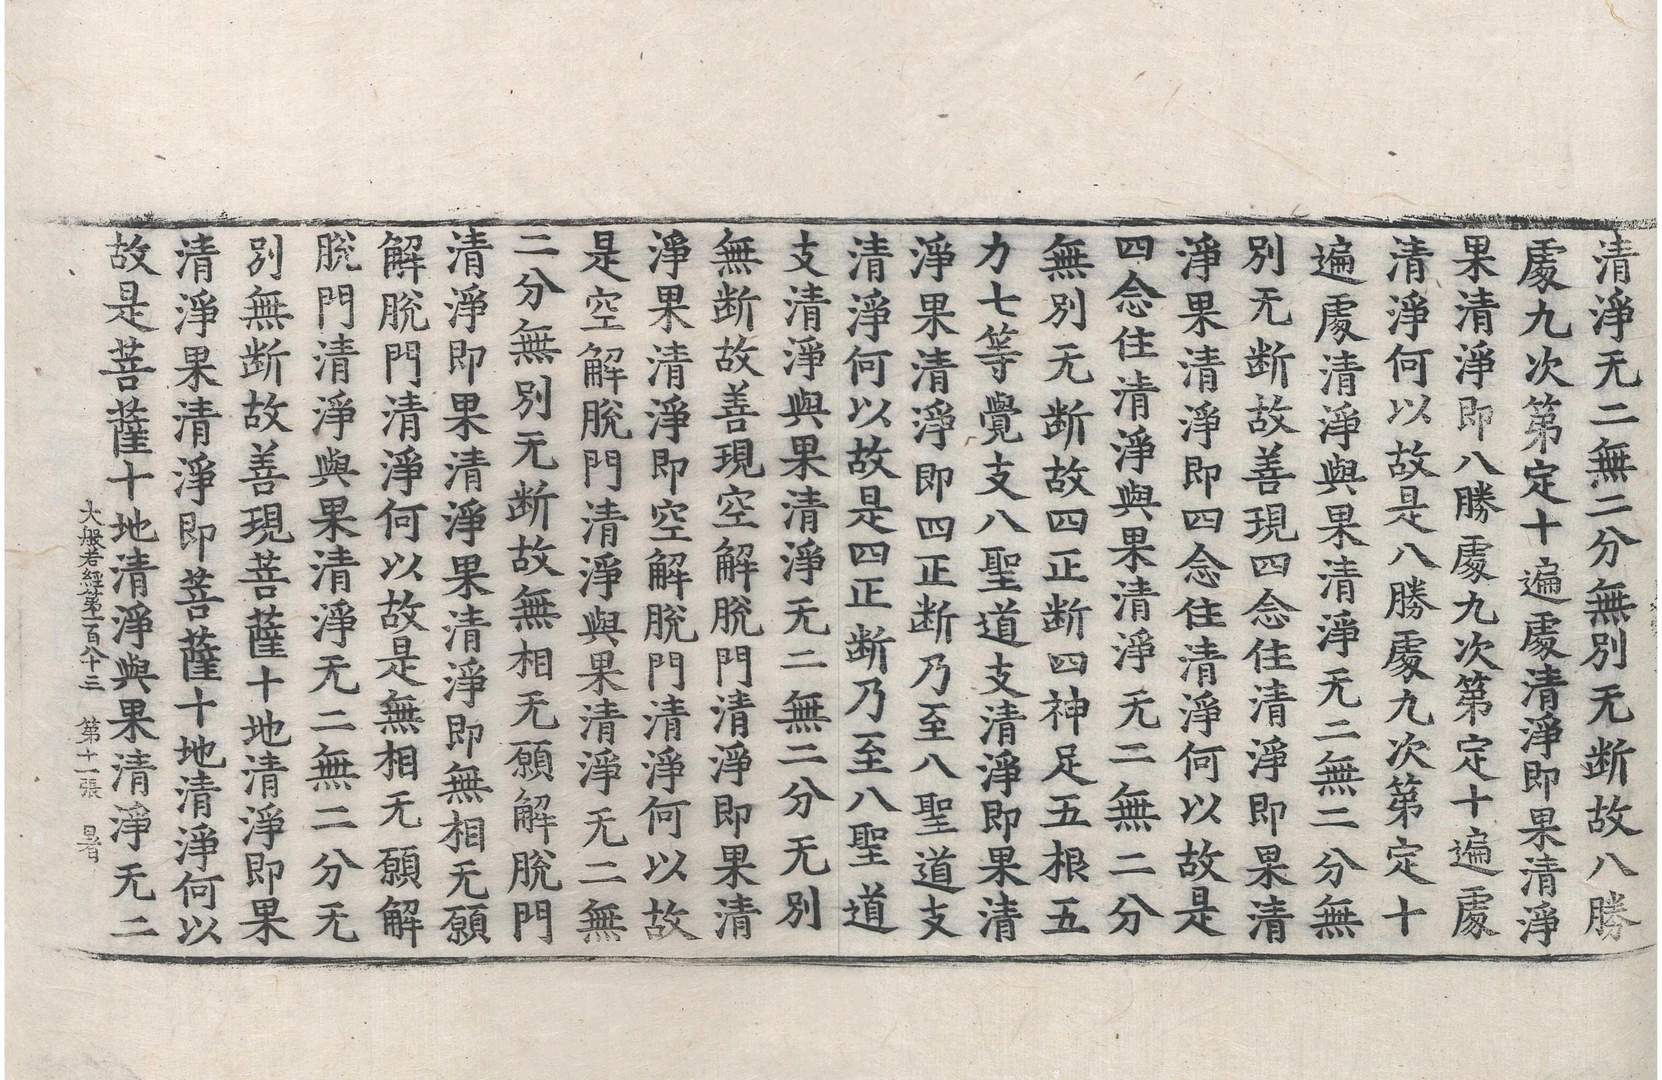 清淨无二無二分無別无断故八勝
處九次第定十遍處清淨即果清淨
果清淨即八勝處九次第定十遍處
清淨何以故是八勝處九次第定十
遍處清淨與果清淨无二無二分無
別无断故善現四念住清淨即果清
淨果清淨即四念住清淨何以故是
四念住清淨與果清淨无二無二分
無別无断故四正断四神足五根五
力七等覺支八聖道支清淨即果清
淨果清淨即四正断乃至八聖道支
清淨何以故是四正断乃至八聖道
支清淨與果清淨无二無二分无別
無断故善現空解脫門清淨即果清
淨果清淨即空解脫門清淨何以故
是空解脫門清淨與果清淨无二無
二分無別无断故無相无願解脫門
清淨即果清淨果清淨即無相无願
解脫門清淨何以故是無相无願解
脫門清淨與果清淨无二無二分无
別無断故善現菩薩十地清淨即果
清淨果清淨即菩薩十地清淨何以
故是菩薩十地清淨與果清淨无二
大般若經第一百八十三 第十一張